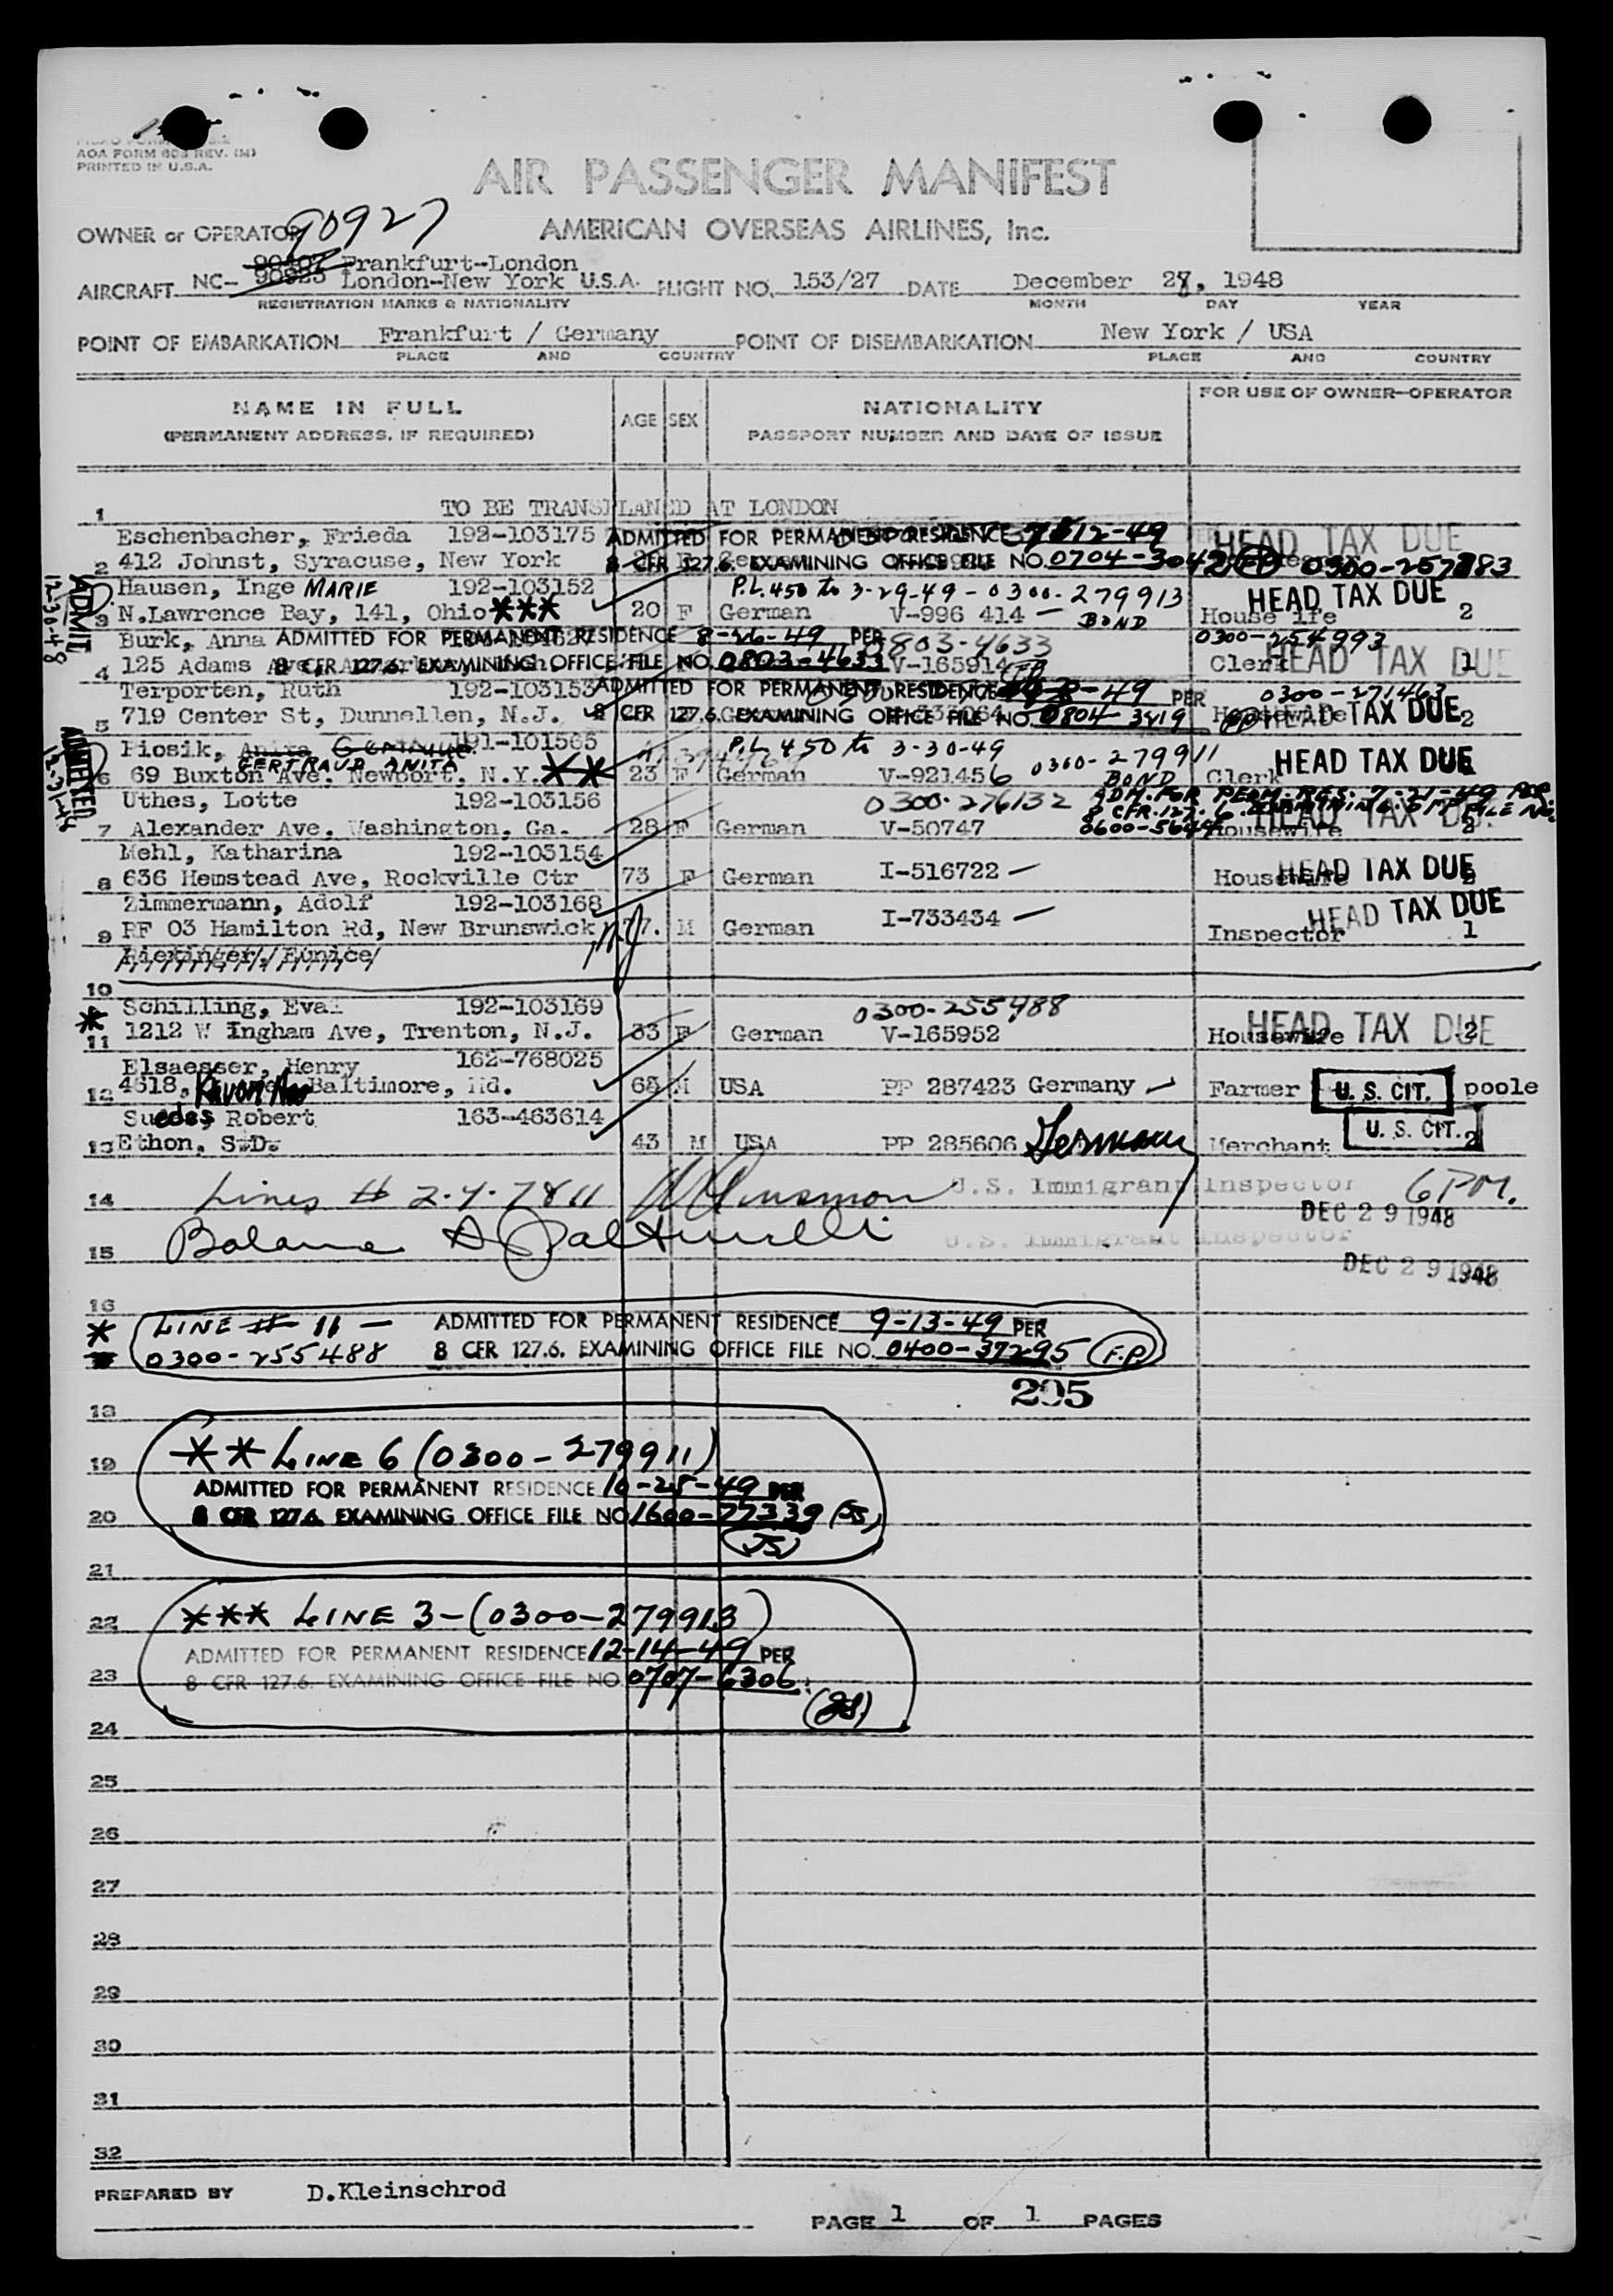 AOA FORM 603 REV. (M)
PRINTED IN U.S.A.
AIR PASSENGER MANIFEST
OWNER or OPERATOR
90927
AMERICAN OVERSEAS AIRLINES, Inc.
Frankfurt--London
AIRCRAFT NC- 90923 London-New York U.S.A. FLIGHT NO. 153/27 DATE December 28, 1948
REGISTRATION MARKS & NATIONALITY MONTH DAY YEAR
POINT OF EMBARKATION Frankfurt / Germany POINT OF DISEMBARKATION New York / USA
PLACE AND COUNTRY PLACE AND COUNTRY
NAME IN FULL AGE SEX NATIONALITY FOR USE OF OWNER-OPERATOR
(PERMANENT ADDRESS, IF REQUIRED) PASSPORT NUMBER AND DATE OF ISSUE
1 TO BE TRANSPLANED AT LONDON
Eschenbacher, Frieda 192-103175 ADMITTED FOR PERMANENT RESIDENCE 7-12-49 HEAD TAX DUE
2 412 Johnst, Syracuse, New York 8 CFR 127.6. EXAMINING OFFICE FILE NO. 0704-3042
Hausen, Inge MARIE 192-103152 P.L. 450 to 3-29-49 - 0300-279913 HEAD TAX DUE
3 N.Lawrence Bay, 141, Ohio *** 20 F German V-996 414 - BOND 2
ADMIT 12-30-48
Burk, Anna ADMITTED FOR PERMANENT RESIDENCE 8-26-49 PER 0803-4633 0300-254993
4 125 Adams 8 CFR 127.6. EXAMINING OFFICE FILE NO. 0803-4633 V-165914 Clerk HEAD TAX DUE 1
Terporten, Ruth 192-103153 ADMITTED FOR PERMANENT RESIDENCE -49 PER 0300-271463
5 719 Center St, Dunnellen, N.J. 8 CFR 127.6. EXAMINING OFFICE FILE NO. 0804-3819 HEAD TAX DUE 2
Piosik, Anita 191-101565 P.L. 450 to 3-30-49 0300-279911 HEAD TAX DUE
GERTRAUD ANITA
6 69 Buxton Ave. Newport, N.Y. ** 23 F German V-921456 BOND Clerk
ADMITTED
Uthes, Lotte 192-103156 0300-276132 ADM. FOR PERM. RES. 7-21-49 PER
8 CFR. 127.6. EXAMINING OFF FILE NO.
7 Alexander Ave. Washington, Ga. 28 F German V-50747 Housewife HEAD TAX DUE
Mehl, Katharina 192-103154 HEAD TAX DUE
8 636 Hemstead Ave, Rockville Ctr 73 F German I-516722 - Housewife
Zimmermann, Adolf 192-103168 HEAD TAX DUE
9 RF 03 Hamilton Rd, New Brunswick N.J. 77. M German I-733434 - Inspector 1
Eunice
10
Schilling, Eva 192-103169 0300-255488
* 11 1212 W Ingham Ave, Trenton, N.J. 33 F German V-165952 Housewife HEAD TAX DUE 2
Elsaesser, Henry 162-768025
12 4618, Baltimore, Md. 68 M USA PP 287423 Germany Farmer U. S. CIT. poole
Suedes Robert 163-463614
13 Ethon, S.D. 43 M USA PP 285606 Germany Merchant U. S. CIT. 2
14 Lines # 2-4-7811 U.S. Immigrant Inspector 6 PM.
DEC 29 1948
15 Balance U.S. Immigrant Inspector
DEC 29 1948
16
* LINE # 11 - ADMITTED FOR PERMANENT RESIDENCE 9-13-49 PER
0300-255488 8 CFR 127.6. EXAMINING OFFICE FILE NO. 0400-37295 (F.P)
205
18
19 ** LINE 6 (0300-279911)
ADMITTED FOR PERMANENT RESIDENCE 10-25-49 PER
20 8 CFR 127.6. EXAMINING OFFICE FILE NO. 1600-77339 (JS)
(JS)
21
22 *** LINE 3-(0300-279913)
ADMITTED FOR PERMANENT RESIDENCE 12-14-49 PER
23 8 CFR 127.6. EXAMINING OFFICE FILE NO. 0707-6306
24
25
26
27
28
29
30
31
32
PREPARED BY D.Kleinschrod
PAGE 1 OF 1 PAGES